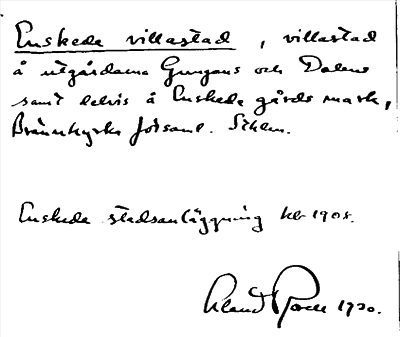 Enskede villastad, villastad
å utgårdarna Gungans och Dalens
samt delvis å Enskede gårds mark,
Brännkyrka förssml. Sthlm.
Enskede stadsanläggning
1930.